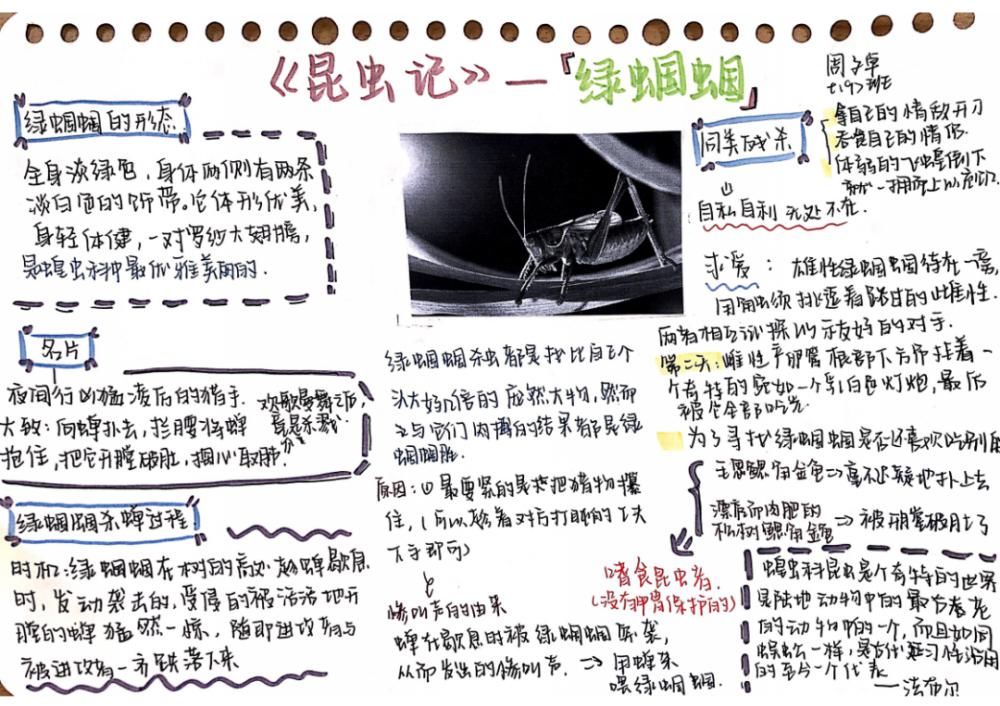 《昆虫记》—『绿蝈蝈』
周子卓
七.9班
绿蝈蝈的形态
全身淡绿色，身体两侧有两条
淡白色的饰带。它体形优美，
身轻体健，一对罗纱大翅膀，
是蝗虫科中最优雅美丽的.
名片
夜间行凶猛凌后的猎手.
大致：向蝉扑去，拦腰将蝉
抱住，把它开膛破肚，掏心取肺.
欢歌曼舞之后，
竟是杀戮
绿蝈蝈杀蝉过程
时机：绿蝈蝈在树的高处，趁蝉歇息
时，发动袭击的，受侵的被活活地开
膛的蝉猛然一惊，随即进攻有与
被进攻有一齐跌落下来
绿蝈蝈杀虫都是找比自己个
头大好几倍的庞然大物，然而
之与它们肉搏的结果都是绿
蝈蝈胜.
原因：① 最要紧的是按把猎物攥
住，（所以趁着对方打盹的工夫
下手即可）
惨叫声的由来
蝉在歇息时被绿蝈蝈所袭，
从而发出的惨叫声.
⇒ 用蝉来
喂绿蝈蝈.
嗜食昆虫者.
（没有甲胄保护的）
同类残杀
拿自己的情敌开刀
吞食自己的情侣
体弱的飞蝗倒下
就一拥而上以
自私自利 无处不在.
求爱：雄性绿蝈蝈待在一旁，
用触须挑逗着路过的雌性.
两者相互试探以示友好的对手.
第二天：雌性产卵管根部下方吊挂着一
个奇特的宛如一个乳白色灯炮，最后
被它全部吃完
为了寻找绿蝈蝈是否还喜欢吃别的
毛思鳃角金龟⇒毫不迟疑地扑上去
漂亮而肉肥的
松树鳃角金龟 ⇒ 被开膛破肚了
蝗虫科昆虫是个奇特的世界
是陆地动物中的最古老
的动物中的一个，而且如同
蜈蚣一样，是古代延习性沿用
的至今一个代表
——法布尔